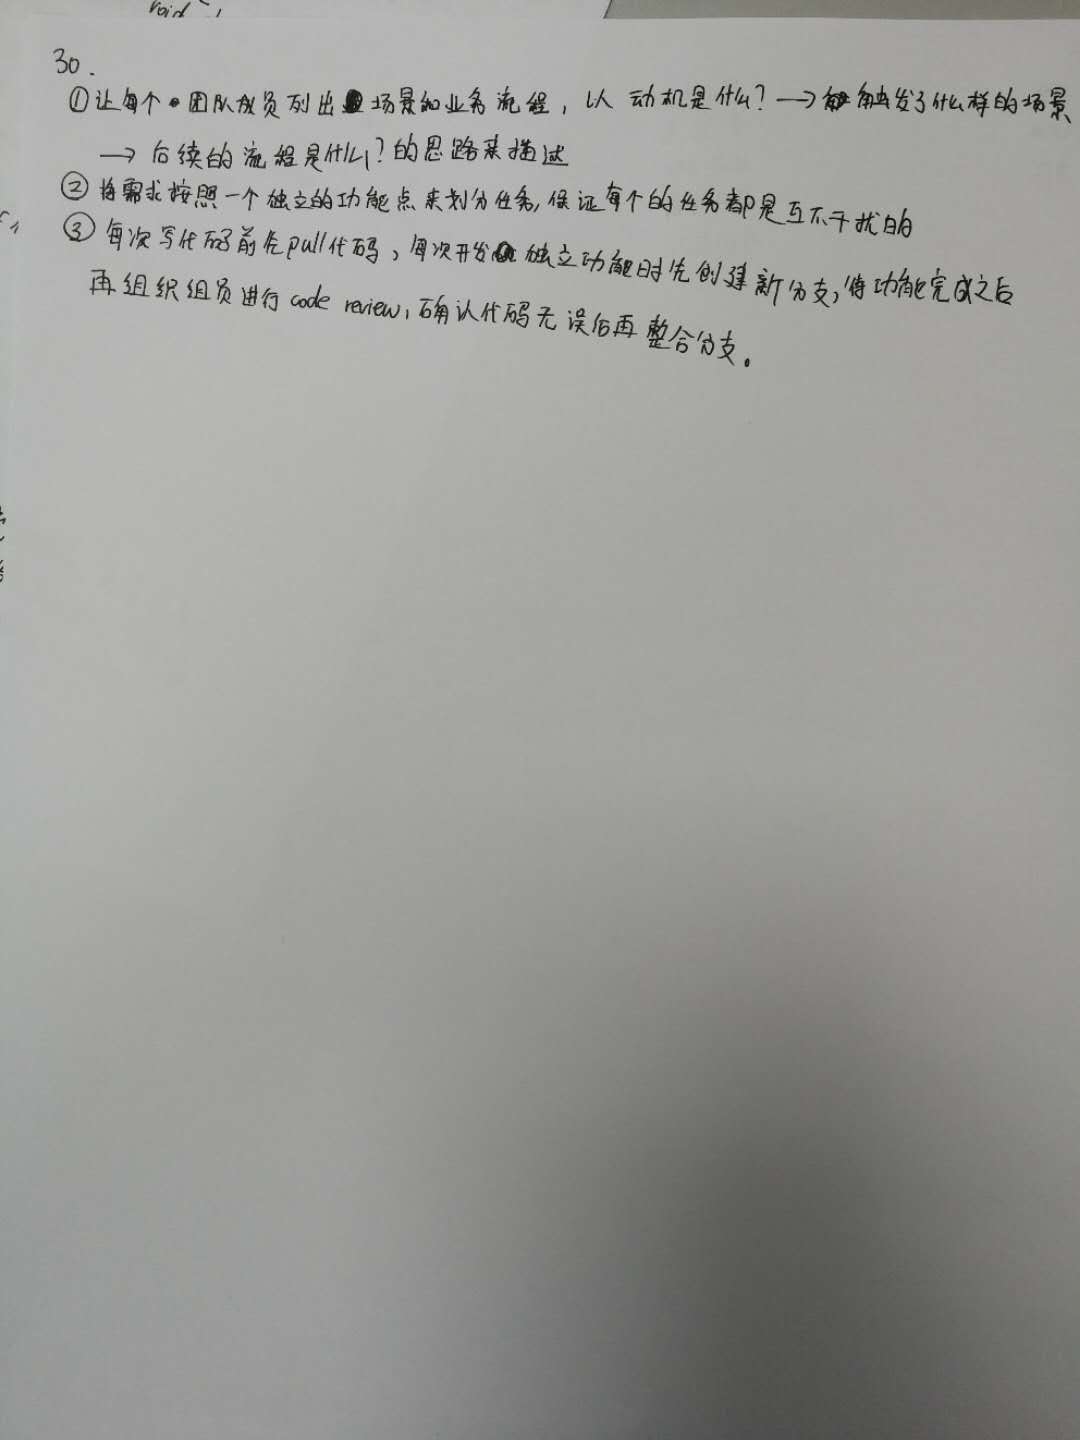 void
30.
①让每个团队成员列出场景和业务流程，以 动机是什么？→触发了什么样的场景
→ 后续的流程是什么？的思路来描述
②将需求按照一个独立的功能点来划分任务，保证每个的任务都是互不干扰的
③每次写代码前先pull代码，每次开发独立功能时先创建新分支，待功能完成之后
再组织组员进行code review，确认代码无误后再整合分支。